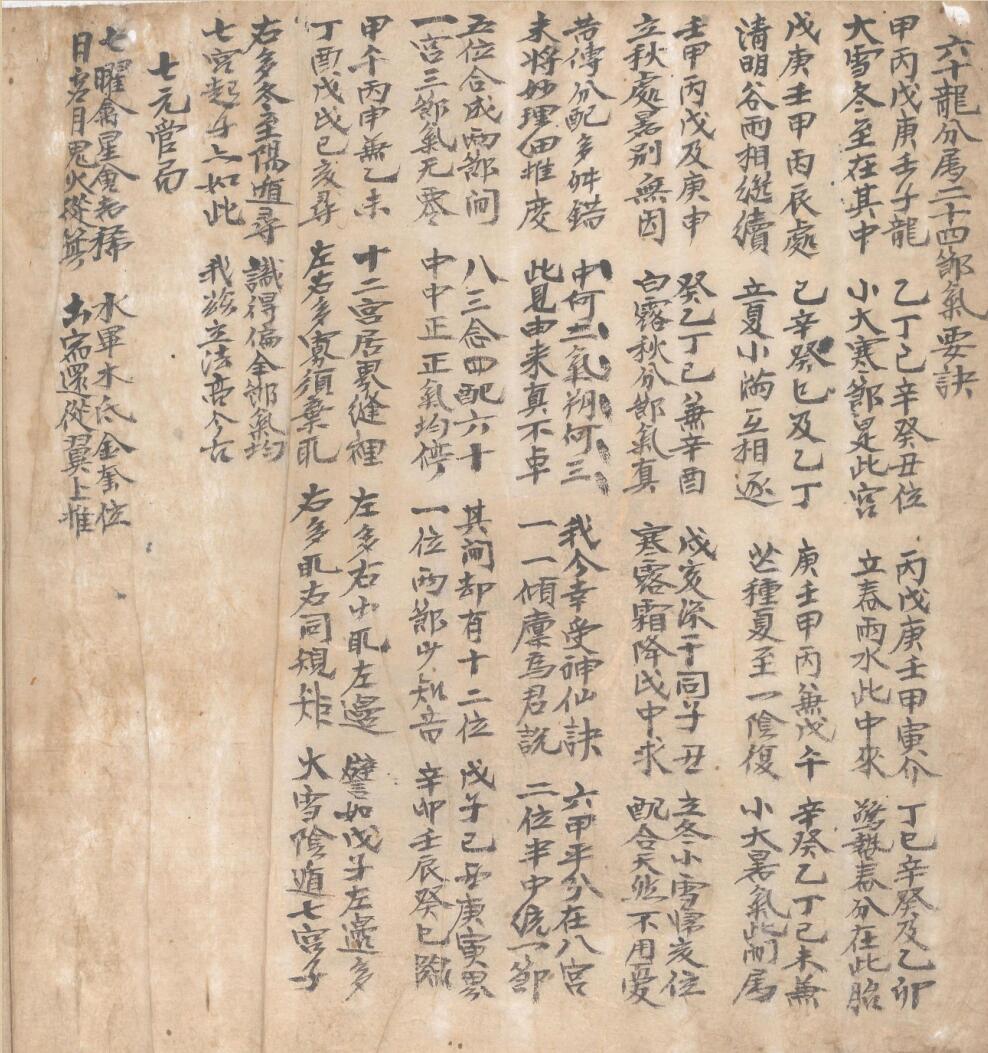 六十龍分属二十四節氣要訣
甲丙戊庚壬子龍 乙丁己辛癸丑位 丙戊庚壬甲寅介 丁己辛癸及乙卯
大雪冬至在其中 小大寒節是此宮 立春雨水此中來 驚蟄春分在此胎
戊庚壬甲丙辰處 己辛癸巳及乙丁 庚壬甲丙兼戊午 辛癸乙丁己未兼
清明谷雨相継續 立夏小滿互相逐 芒種夏至一陰復 小大暑氣此所属
壬甲丙戊及庚申 癸乙丁己兼辛酉 戊亥深干同子丑 立冬小雪帰亥位
立秋處暑别無因 白露秋分節氣真 寒露霜降戌中求 配合天然不用憂
昔傳分配多舛錯 中何二氣朔何三 我今幸受神仙訣 六甲平分在八宮
未将妙理細推度 此見由来真不卓 一一傾廩為君説 二位半中統一節
五位合成両節间 八三念四配六十 其间却有十二位 戊子己丑庚寅界
一宮三節氣无零 中中正正氣均停 一位両節少知音 辛卯壬辰癸巳臨
甲午丙申無乙未 十二宮居界縫裡 左多右少取左邊 譬如戊子左邊多
丁酉戊戌己亥尋 左右多寡須棄取 右多取右同規矩 大雪陰遁七宮子
右多冬至陽遁尋 識得偏全節氣均
七宮起子亦如此 我兹立法高今古
七元管局
七曜禽星會者稀 水軍水氐金奎位
日虚月鬼火從箕 土宿還從翼上推